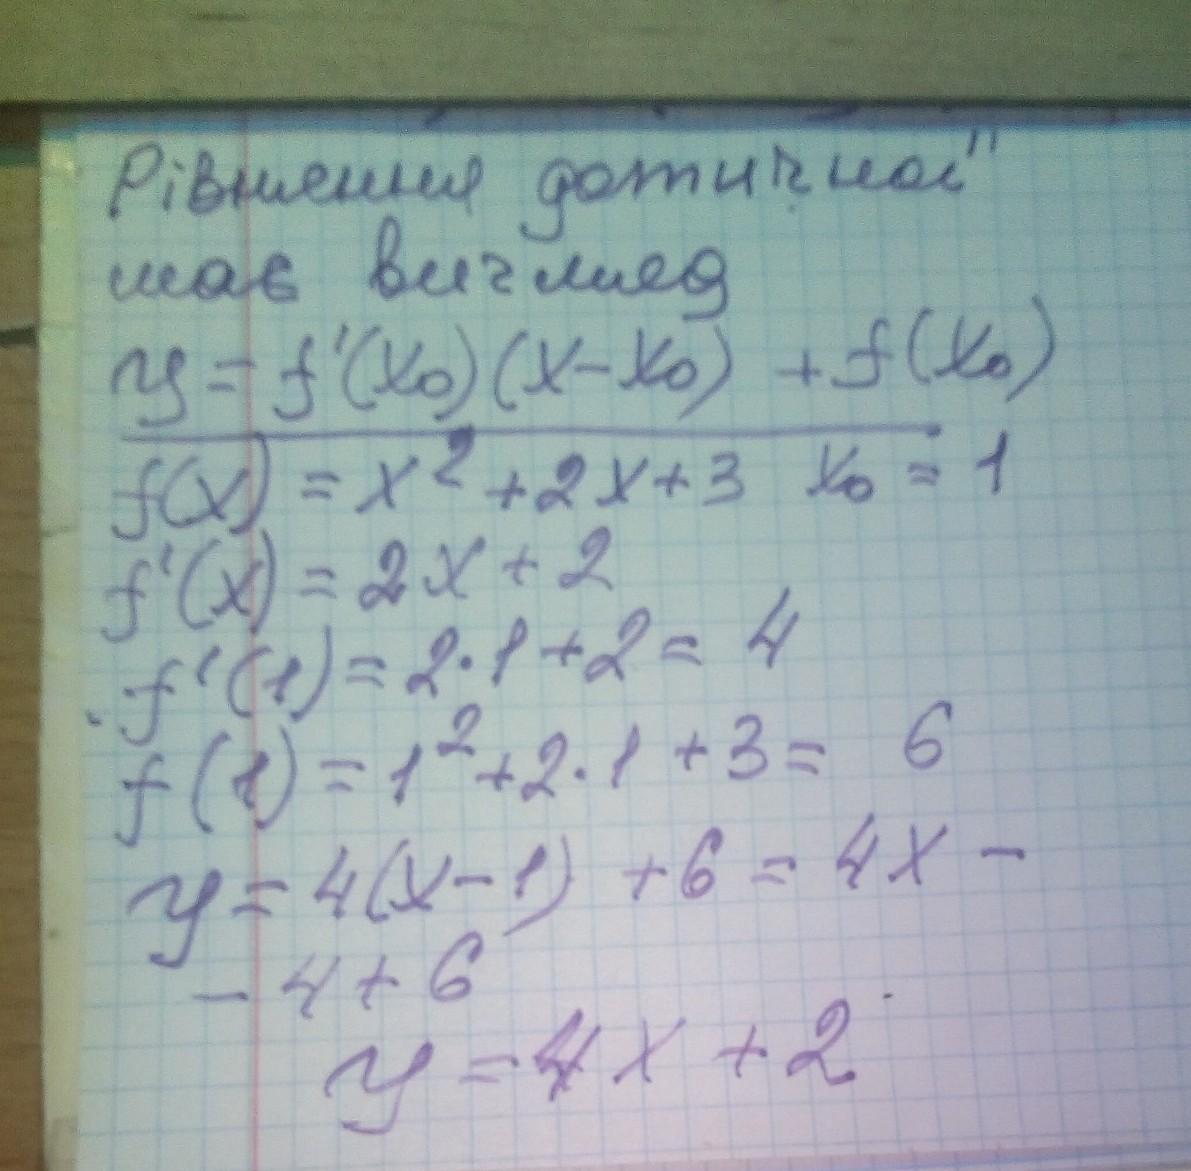 Рівняння дотичної
має вигляд
y = f'(x₀)(x-x₀) + f(x₀)
f(x) = x² + 2x + 3 x₀ = 1
f'(x) = 2x + 2
f'(1) = 2·1 + 2 = 4
f(1) = 1² + 2·1 + 3 = 6
y = 4(x-1) + 6 = 4x -
- 4 + 6
y = 4x + 2